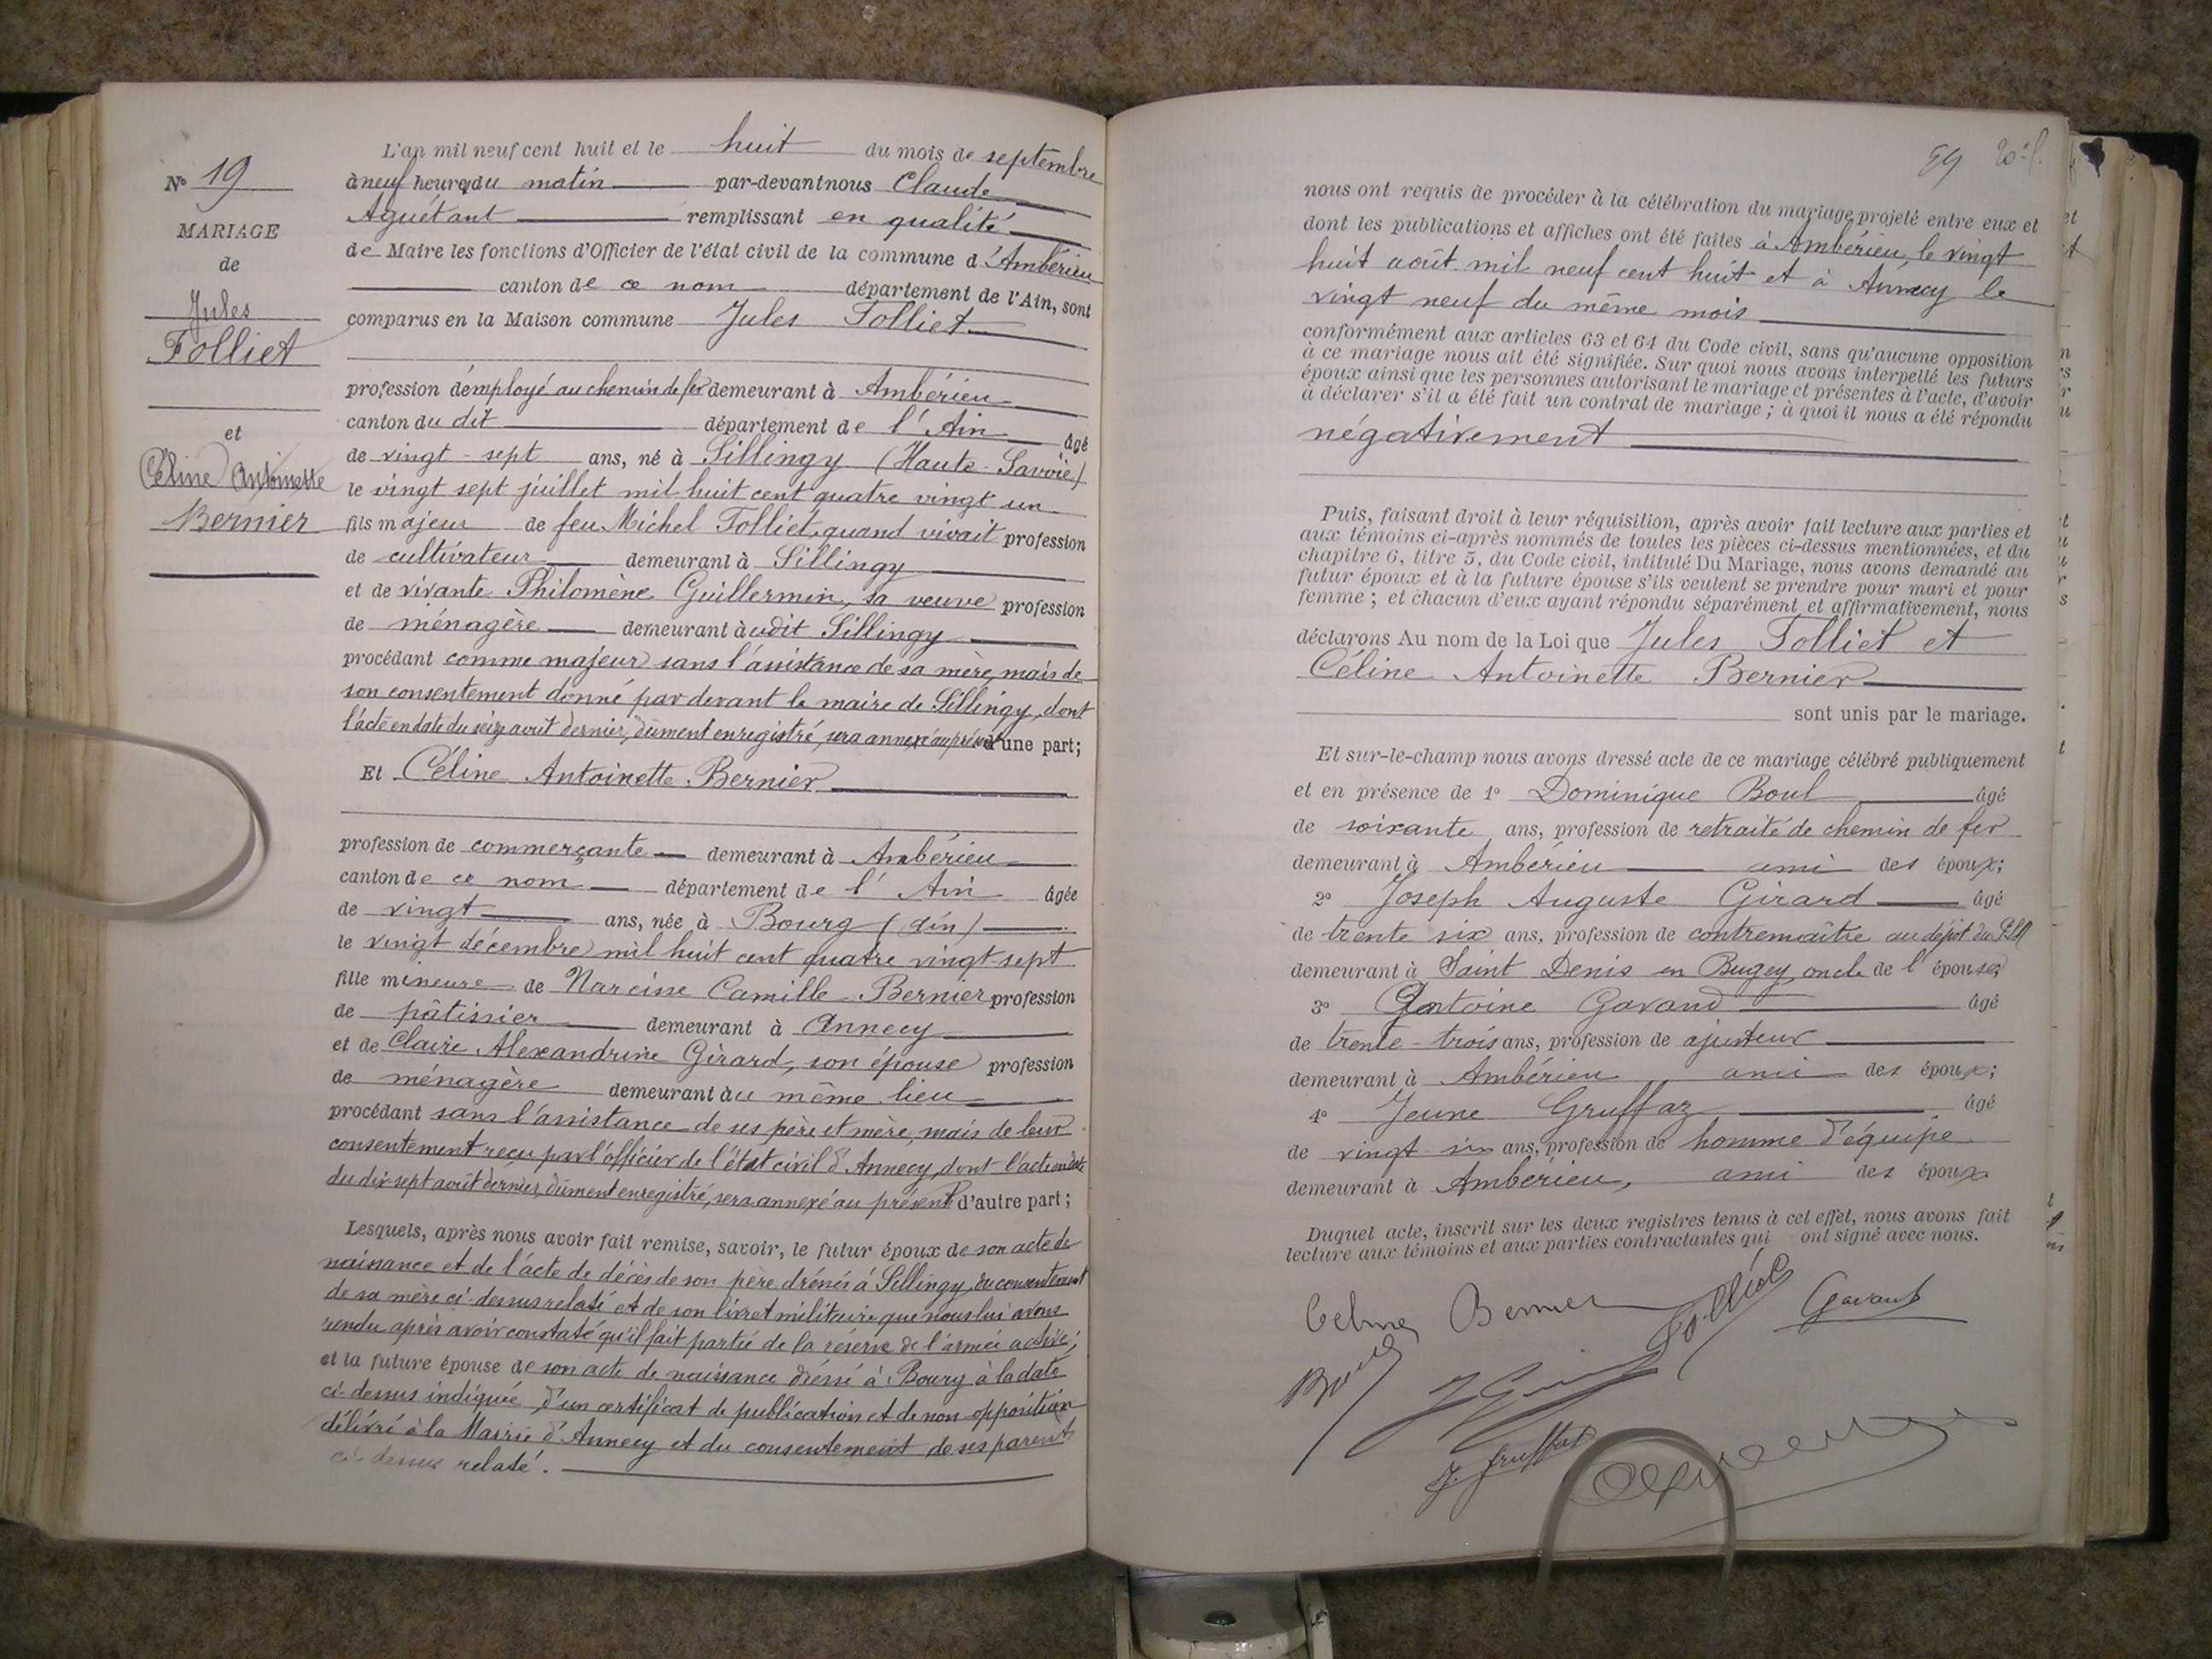 N° 19
MARIAGE
de
Jules
Folliet
et
Céline Antoinette
Bernier
L'an mil neuf cent huit et le huit du mois de septembre
à neuf heures du matin par-devant nous Claude
Aguétant remplissant en qualité
de Maire les fonctions d'Officier de l'état civil de la commune d'Ambérieu
canton de ce nom département de l'Ain, sont
comparus en la Maison commune Jules Folliet
profession d'employé au chemin de fer demeurant à Ambérieu
canton du dit département de l'Ain âgé
de vingt-sept ans, né à Sillingy (Haute-Savoie)
le vingt sept juillet mil huit cent quatre vingt un
fils majeur de feu Michel Folliet, quand vivait profession
de cultivateur demeurant à Sillingy
et de vivante Philomène Guillermin, sa veuve profession
de ménagère demeurant audit Sillingy
procédant comme majeur sans l'assistance de sa mère, mais de
son consentement donné par devant le maire de Sillingy, dont
l'acte en date du seize août dernier, dûment enregistré, sera annexé au présent d'une part;
Et Céline Antoinette Bernier
profession de commerçante demeurant à Ambérieu
canton de ce nom département de l'Ain âgée
de vingt ans, née à Bourg (Ain)
le vingt décembre mil huit cent quatre vingt-sept
fille mineure de Narcisse Camille Bernier profession
de pâtissier demeurant à Annecy
et de Claire Alexandrine Girard, son épouse profession
de ménagère demeurant au même lieu
procédant sans l'assistance de ses père et mère, mais de leur
consentement reçu par l'officier de l'état civil d'Annecy, dont l'acte en date
du dix-sept août dernier, dûment enregistré, sera annexé au présent d'autre part;
Lesquels, après nous avoir fait remise, savoir, le futur époux de son acte de
naissance et de l'acte de décès de son père dréssés à Sillingy, du consentement
de sa mère ci-dessus relaté et de son livret militaire que nous lui avons
rendu après avoir constaté qu'il fait partie de la réserve de l'armée active;
et la future épouse de son acte de naissance dréssé à Bourg à la date
ci-dessus indiquée, d'un certificat de publication et de non opposition
délivré à la Mairie d'Annecy et du consentement de ses parents
ci-dessus relaté.
89
nous ont requis de procéder à la célébration du mariage projeté entre eux et
dont les publications et affiches ont été faites à Ambérieu, le vingt
huit août mil neuf cent huit et à Annecy le
vingt neuf du même mois
conformément aux articles 63 et 64 du Code civil, sans qu'aucune opposition
à ce mariage nous ait été signifiée. Sur quoi nous avons interpellé les futurs
époux ainsi que les personnes autorisant le mariage et présentes à l'acte, d'avoir
à déclarer s'il a été fait un contrat de mariage; à quoi il nous a été répondu
négativement
Puis, faisant droit à leur réquisition, après avoir fait lecture aux parties et
aux témoins ci-après nommés de toutes les pièces ci-dessus mentionnées, et du
chapitre 6, titre 5, du Code civil, intitulé Du Mariage, nous avons demandé au
futur époux et à la future épouse s'ils veulent se prendre pour mari et pour
femme; et chacun d'eux ayant répondu séparément et affirmativement, nous
déclarons Au nom de la Loi que Jules Folliet et
Céline Antoinette Bernier
sont unis par le mariage.
Et sur-le-champ nous avons dressé acte de ce mariage célébré publiquement
et en présence de 1° Dominique Boul âgé
de soixante ans, profession de retraité de chemin de fer
demeurant à Ambérieu ami des époux;
2° Joseph Auguste Girard âgé
de trente six ans, profession de contremaître au dépôt du PLM
demeurant à Saint Denis en Bugey, oncle de l'épouse;
3° Antoine Gavand âgé
de trente-trois ans, profession de ajusteur
demeurant à Ambérieu ami des époux;
4° Jeune Gruffaz âgé
de vingt six ans, profession de homme d'équipe
demeurant à Ambérieu, ami des époux
Duquel acte, inscrit sur les deux registres tenus à cet effet, nous avons fait
lecture aux témoins et aux parties contractantes qui ont signé avec nous.
Celine Bernier Folliet Gavand
Boul
J. Gruffaz